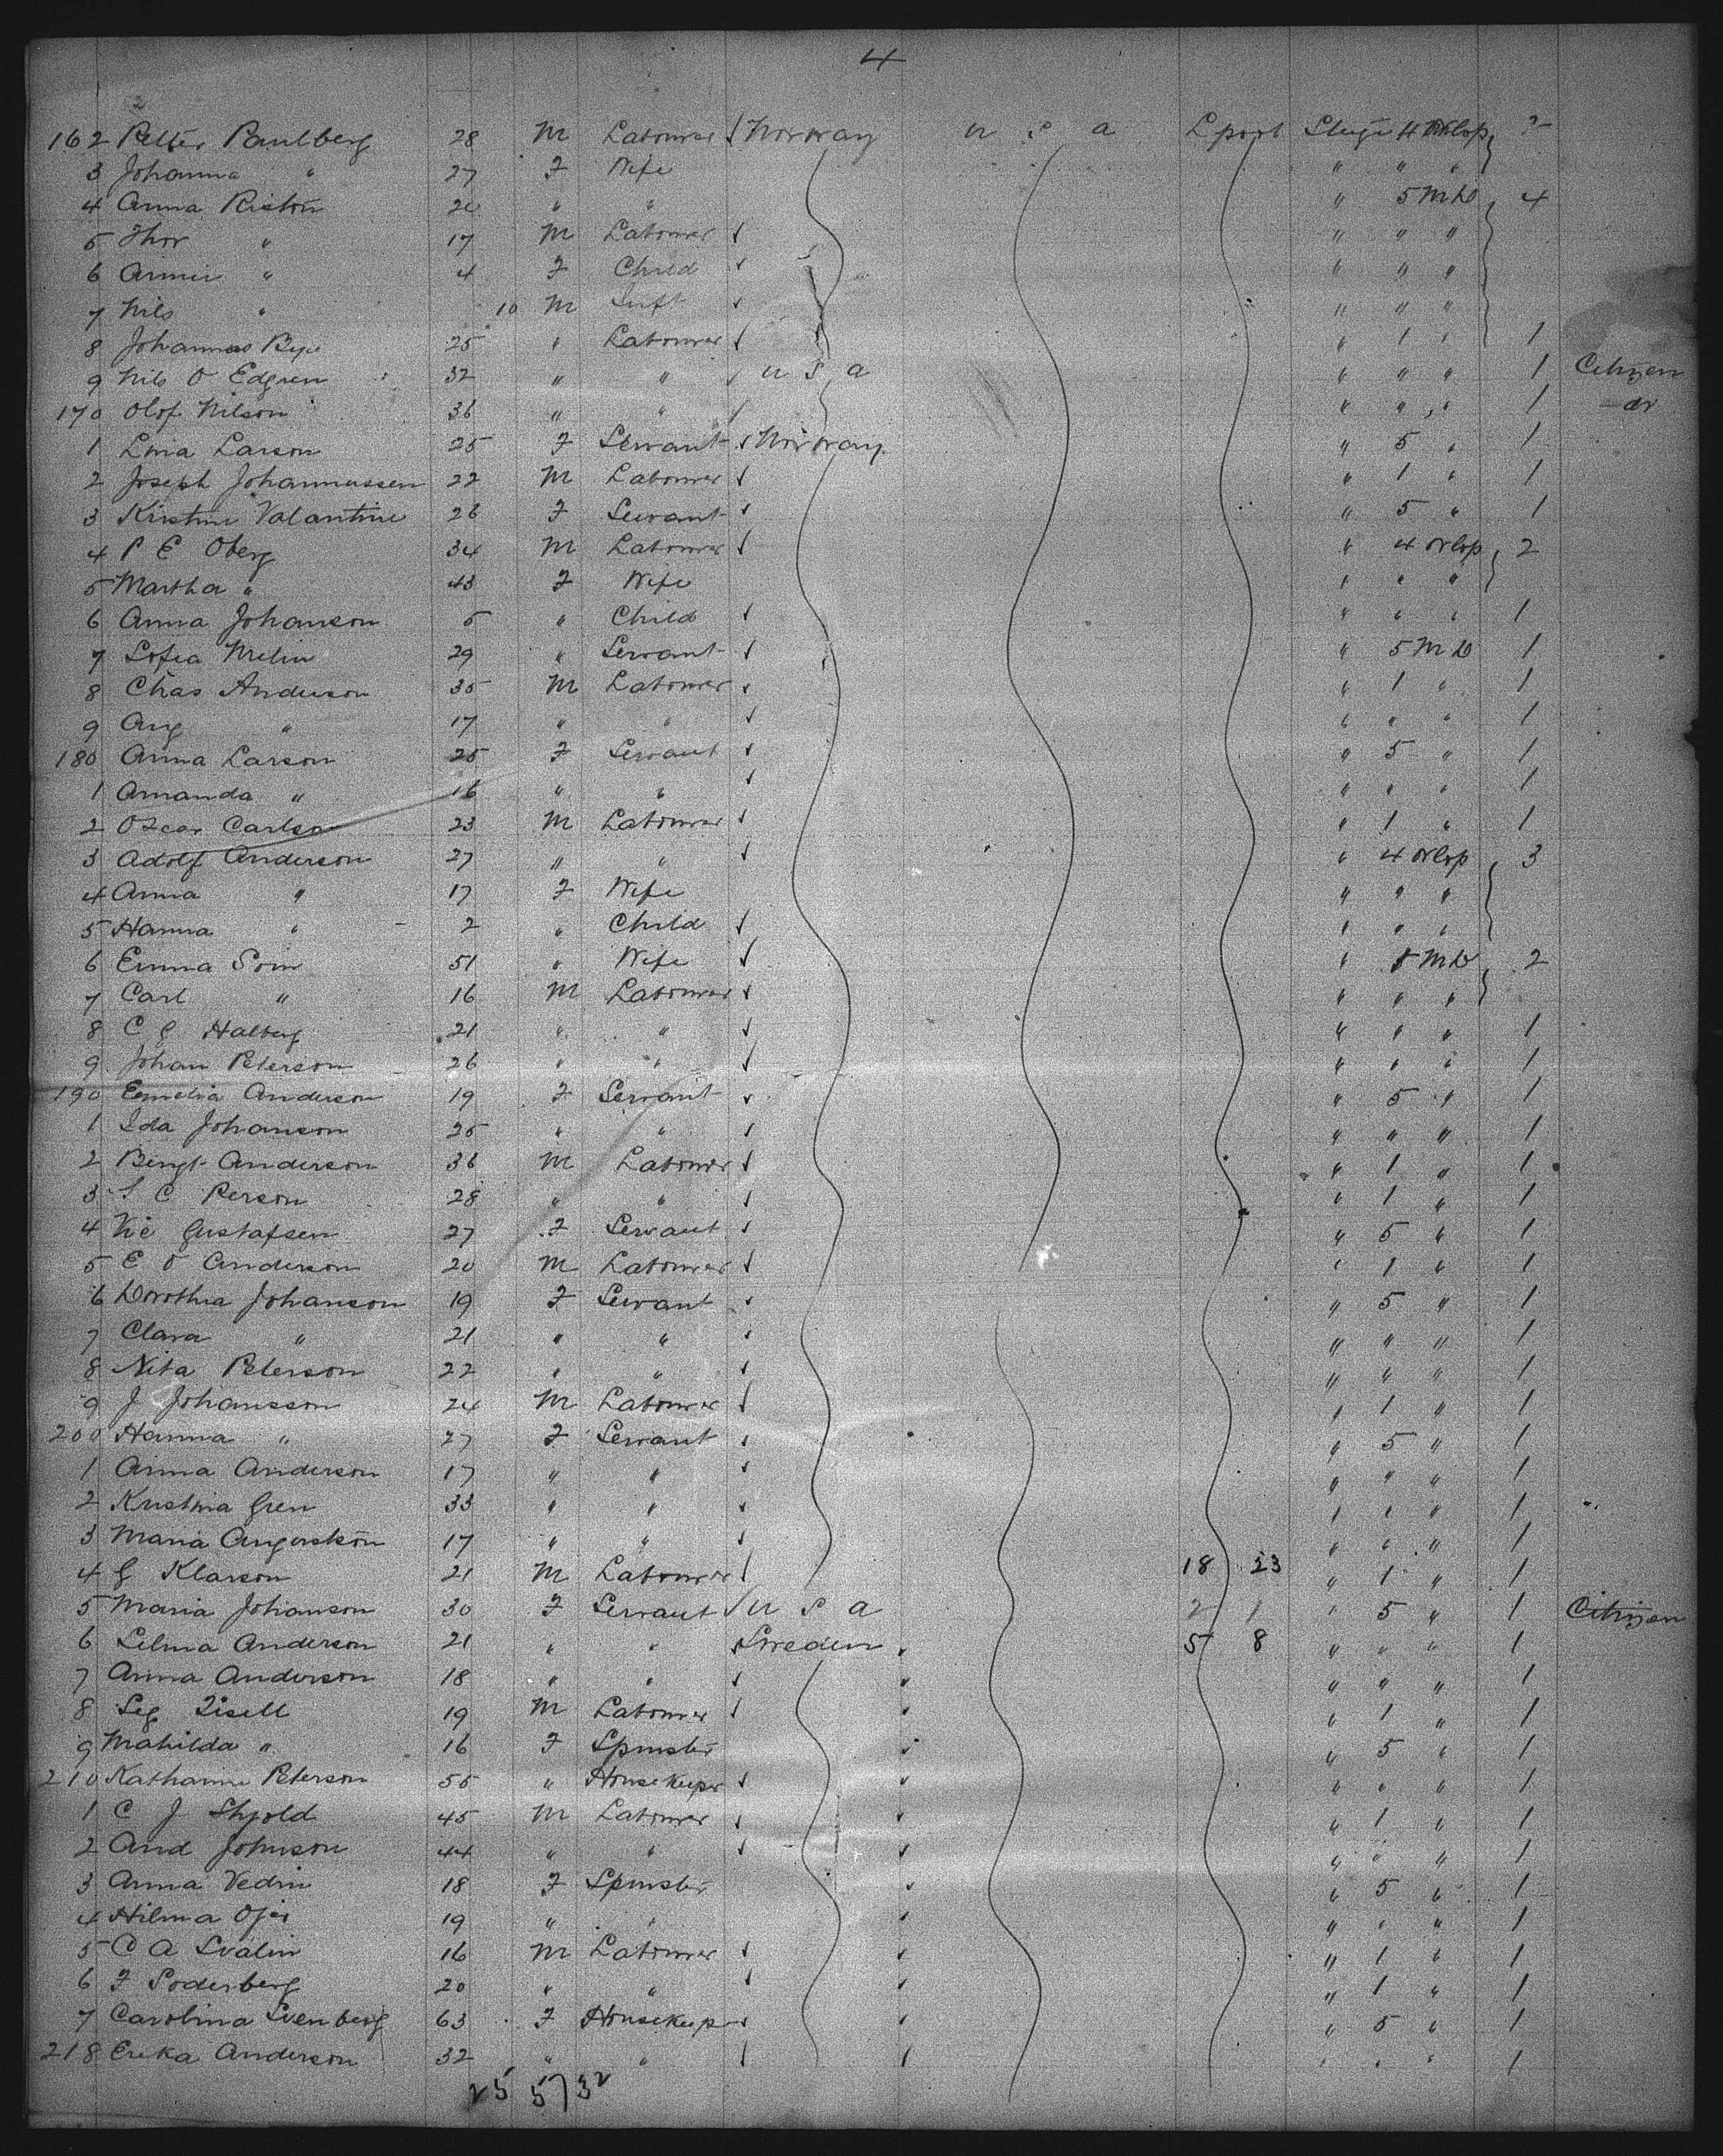 4
162 Petter Paulberg 28 M Labourer Norway U S A Lpool Stege 4 Orlop 2
3 Johanna " 27 F Wife " " "
4 Anna 20 " " " 5 M D 4
5 Thor " 17 M Labourer " " "
6 " 4 F Child " " "
7 Nils " 10 M Inft " " "
8 Johannes Bye 25 " Labourer " 1 " 1
9 Nils O Edgren 32 " " U S A " " " 1 Citizen
170 Olof Nilson 36 " " " " " 1 do
1 Lina Larson 25 F Servant Norway " 5 " 1
2 Joseph Johannussen 22 M Labourer " 1 " 1
3 Kristine Valantine 26 F Servant " 5 " 1
4 P E Oberg 34 M Labourer " 4 Orlop 2
5 Martha " 43 F Wife " " "
6 Anna Johanson 5 " Child " " " 1
7 Sofia 29 " Servant " 5 M D 1
8 Chas Anderson 35 M Labourer " 1 " 1
9 Aug " 17 " " " " " 1
180 Anna Larson 25 F Servant " 5 " 1
1 Amanda " 16 " " " " " 1
2 Oscar Carlson 23 M Labourer " 1 " 1
3 Adolf Anderson 27 " " " 4 Orlop 3
4 Anna " 17 F Wife " " "
5 Hanna " 2 " Child " " "
6 Emma 51 " Wife " M D 2
7 Carl " 16 M Labourer " " "
8 C G Halberg 21 " " " " " 1
9 Johan Peterson 26 " " " " " 1
190 Emelia Anderson 19 F Servant " 5 " 1
1 Ida Johanson 25 " " " " " 1
2 Bengt Anderson 36 M Labourer " 1 " 1
3 S C Person 28 " " " 1 " 1
4 Vic Gustafsen 27 F Servant " 5 " 1
5 E O Anderson 20 M Labourer " 1 " 1
6 Dorothea Johanson 19 F Servant " 5 " 1
7 Clara " 21 " " " " " 1
8 Nita Peterson 22 " " " " " 1
9 J Johansson 24 M Labourer " 1 " 1
200 Hanna " 27 F Servant " 5 " 1
1 Anna Anderson 17 " " " " " 1
2 Kristina Gren 33 " " " " " 1
3 Maria Augustson 17 " " " " " 1
4 G Klarson 21 M Labourer 18 23 " 1 " 1
5 Maria Johanson 30 F Servant U S A 2 1 " 5 " 1 Citizen
6 Selma Anderson 21 " " Sweden 5 8 " " " 1
7 Anna Anderson 18 " " " " " 1
8 Seg Zisell 19 M Labourer " 1 " 1
9 Mahilda " 16 F Spinster " 5 " 1
210 Katharine Peterson 55 " Housekeeper " " " 1
1 C J Shjold 45 M Labourer " 1 " 1
2 And Johnson 44 " " " " " 1
3 Anna Vedin 18 F Spinster " 5 " 1
4 Hilma 19 " " " " " 1
5 C A Svalin 16 M Labourer " 1 " 1
6 F Soderberg 20 " " " 1 " 1
7 Carolina Svenberg 63 F Housekeeper " 5 " 1
218 Erika Anderson 32 " " " " " 1
25 57 32